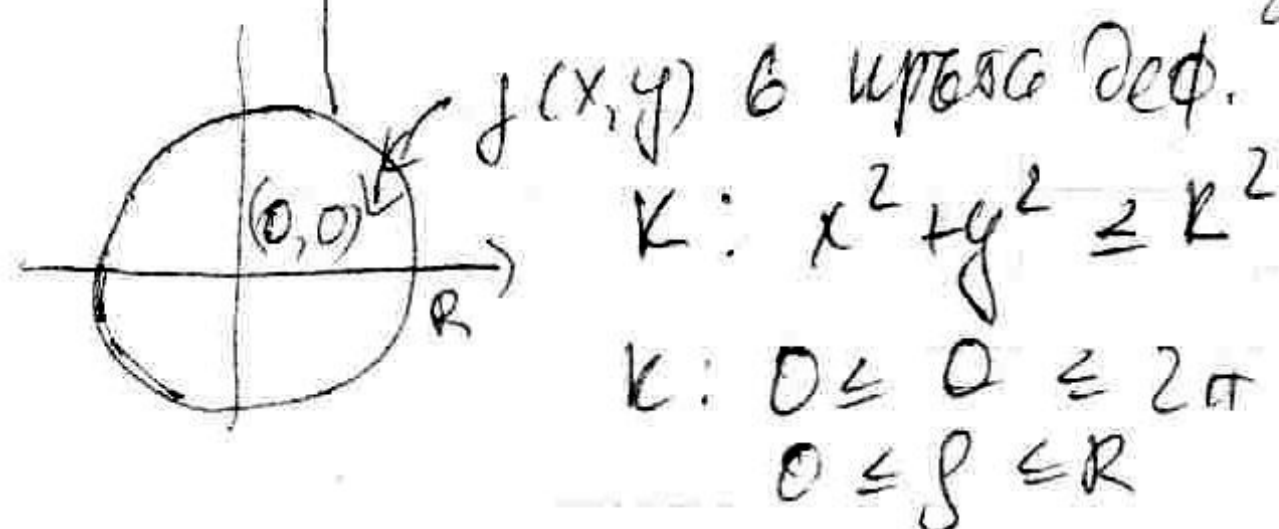 f(x,y) в кръга деф.
(0,0)
K: x² + y² ≤ R²
R
K: 0 ≤ θ ≤ 2π
0 ≤ ρ ≤ R